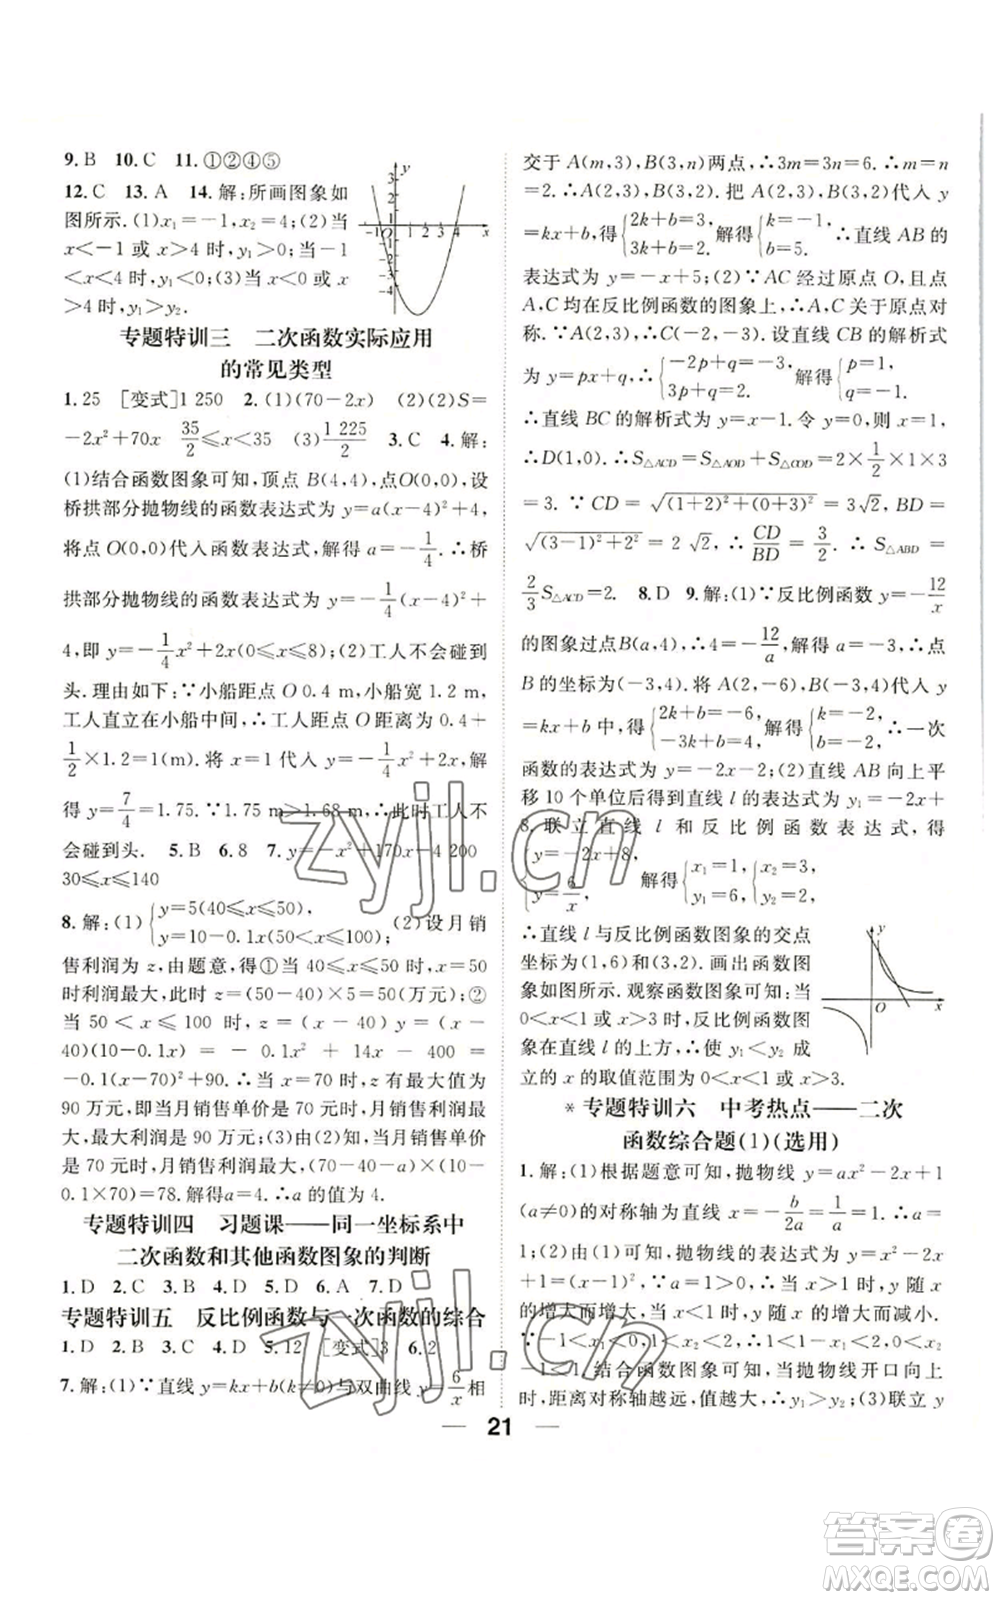 9. B 10. C 11. ①②④⑤
12. C 13. A 14. 解:所画图象如
图所示. (1)x₁=-1, x₂=4;(2)当
x<-1 或 x>4 时, y₁>0;当-1
<x<4 时, y₁<0;(3)当 x<0 或 x
>4 时, y₁>y₂.
y
3
2
-1 O 1 2 3 4 x
-1
-2
-3
-4
专题特训三 二次函数实际应用
的常见类型
1. 25 [变式]1 250 2. (1)(70-2x) (2)(2)S=
-2x²+70x 35/2≤x<35 (3)1 225/2 3. C 4. 解:
(1)结合函数图象可知,顶点 B(4,4),点 O(0,0),设
桥拱部分抛物线的函数表达式为 y=a(x-4)²+4,
将点 O(0,0)代入函数表达式,解得 a=-1/4. ∴桥
拱部分抛物线的函数表达式为 y=-1/4(x-4)²+
4,即 y=-1/4x²+2x(0≤x≤8);(2)工人不会碰到
头. 理由如下:∵小船距点 O 0.4 m,小船宽 1.2 m,
工人直立在小船中间,∴工人距点 O 距离为 0.4+
1/2×1.2=1(m). 将 x=1 代入 y=-1/4x²+2x,解
得 y=7/4=1.75. ∵1.75 m>1.68 m,∴此时工人不
会碰到头. 5. B 6. 8 7. y=-x²+170x-4 200
30≤x≤140
8. 解:(1){y=5(40≤x≤50), y=10-0.1x(50<x≤100). (2)设月销
售利润为 z,由题意,得①当 40≤x≤50 时,x=50
时利润最大,此时 z=(50-40)×5=50(万元);②
当 50<x≤100 时, z=(x-40)y=(x-
40)(10-0.1x)=-0.1x²+14x-400=
-0.1(x-70)²+90. ∴当 x=70 时, z 有最大值为
90 万元,即当月销售单价是 70 元时,月销售利润最
大,最大利润是 90 万元;(3)由(1)知,当月销售单价
是 70 元时,月销售利润最大,即(70-40-a)(10-
0.1×70)=78. 解得 a=4. ∴a 的值为 4.
专题特训四 习题课——同一坐标系中
二次函数和其他函数图象的判断
1. D 2. C 3. B 4. D 5. D 6. A 7. D
专题特训五 反比例函数与一次函数的综合
1. D 2. B 3. C 4. D 5. 12 [变式]3 6. 2
7. 解:(1)∵直线 y=kx+b(k≠0)与双曲线 y=6/x相
交于 A(m,3),B(3,n)两点,∴3m=3n=6. ∴m=n
=2. ∴A(2,3),B(3,2). 把 A(2,3),B(3,2)代入 y
=kx+b,得{2k+b=3, 3k+b=2. 解得{k=-1, b=5. ∴直线 AB 的
表达式为 y=-x+5;(2)∵AC 经过原点 O,且点
A,C 均在反比例函数的图象上,∴A,C 关于原点对
称. ∵A(2,3),∴C(-2,-3). 设直线 CB 的解析式
为 y=px+q,∴{-2p+q=-3, 3p+q=2. 解得{p=1, q=-1.
∴直线 BC 的解析式为 y=x-1. 令 y=0,则 x=1.
∴D(1,0). ∴S△ACD=S△AOD+S△COD=2×1/2×1×3
=3. ∵CD=√((1+2)²+(0+3)²)=3√2, BD=
√((3-1)²+2²)=2√2, ∴CD/BD=3/2. ∴S△ABD=
2/3S△ACD=2. 8. D 9. 解:(1)∵反比例函数 y=-12/x
的图象过点B(a,4),∴4=-12/a,解得 a=-3,∴点
B 的坐标为(-3,4). 将 A(2,-6),B(-3,4)代入
y=kx+b 中,得{2k+b=-6, -3k+b=4, 解得{k=-2, b=-2. ∴一次
函数的表达式为 y=-2x-2;(2)直线 AB 向上平
移 10 个单位后得到直线 l 的表达式为 y₁=-2x+
8,联立直线 l 和反比例函数表达式,得
{y=-2x+8, y=6/x, 解得{x₁=1, y₁=6, {x₂=3, y₂=2.
∴直线 l 与反比例函数图象的交点
坐标为(1,6)和(3,2). 画出函数图
象如图所示. 观察函数图象可知:当
0<x<1 或 x>3 时,反比例函数图
象在直线 l 的上方,∴使 y₁<y₂ 成
立的 x 的取值范围为 0<x<1 或 x>3.
y
O x
*专题特训六 中考热点——二次
函数综合题(1)(选用)
1. 解:(1)根据题意可知,抛物线 y=ax²-2x+1
(a≠0)的对称轴为直线 x=-b/2a=1/a=1,∴a=
1;(2)由(1)可知,抛物线的表达式为 y=x²-2x+
1=(x-1)²,∵a=1>0,∴当 x>1 时,y 随 x 的增
大而增大,当 x<1 时,y 随 x 的增大而减小.
∵-1<x₁<0,1<x₂<2,∴1<1-x₁<2,0<x₂
-1<1,∴结合函数图象可知,当抛物线开口向上
时,距离对称轴越远,值越大,∴y₁>y₂;(3)联立 y
21
zyjl.cn
zyjl.cn
答案圈
MXQE.COM